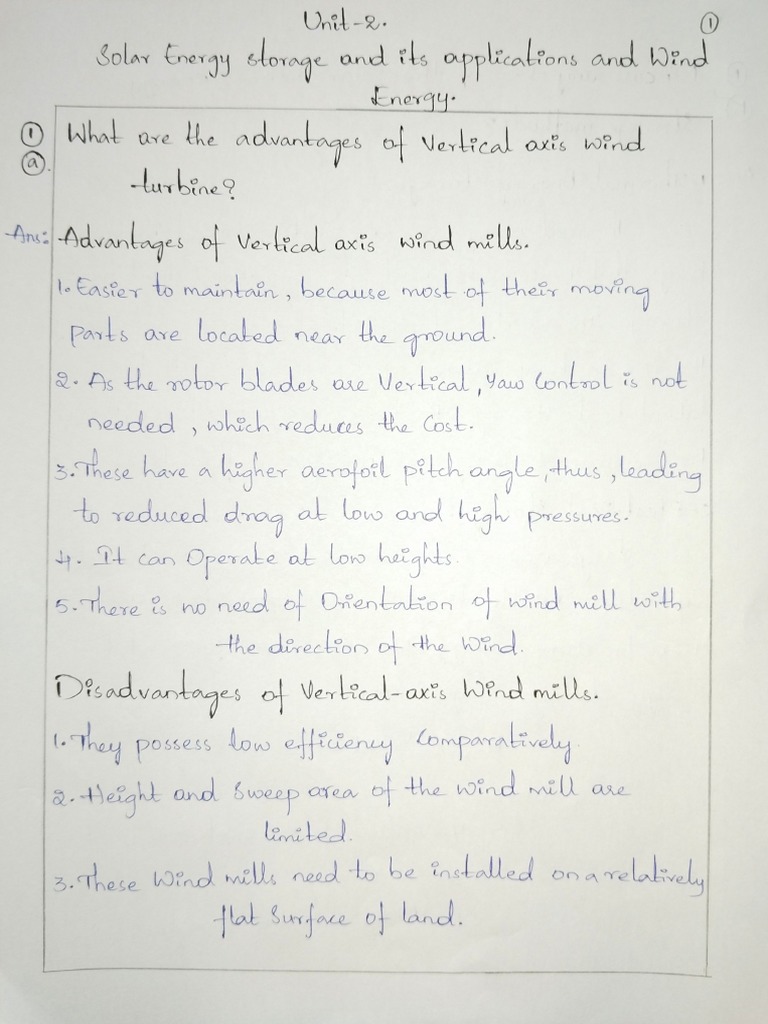 Unit-2.
①
Solar Energy storage and its applications and Wind
Energy.
① What are the advantages of Vertical axis wind
ⓐ.
turbine?
Ans: Advantages of Vertical axis wind mills.
1. Easier to maintain, because most of their moving
parts are located near the ground.
2. As the rotor blades are Vertical, Yaw Control is not
needed, which reduces the Cost.
3. These have a higher aerofoil pitch angle, thus, leading
to reduced drag at low and high pressures.
4. It can Operate at low heights.
5. There is no need of Orientation of wind mill with
the direction of the Wind.
Disadvantages of Vertical-axis Wind mills.
1. They possess low efficiency Comparatively.
2. Height and Sweep area of the wind mill are
limited.
3. These Wind mills need to be installed on a relatively
flat Surface of land.